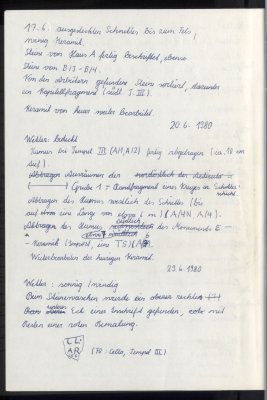 17.6. ausgedehnten Schnittes bis zum Fels,
wenig Keramik.
Steine von Haus A fertig beschriftet, ebenso
Steine von B13 - B14.
Von den Arbeitern gefundene Steine sortiert, darunter
ein Kapitellfragment (südl. T. III).
Keramik von heuer weiter bearbeitet.
20.6. 1980
Wetter: bedeckt
Humus bei Tempel III (A11, A12) fertig abgetragen (ca. 10 cm
tief).
Abtragen Ausräumen der
Grube 1 = Randfragment eines Kruges in Schotter-
schicht.
Abtragen des Humus westlich des Schnittes (bis
auf eine Länge von 1 m) (A/4N, A/4).
Abtragen des Humus südlich des Monuments E
- Keramik (Import, ein TS)
Weiterbearbeiten der heurigen Keramik.
23.6. 1980
Wetter: sonnig, windig
Beim Steinewaschen wurde ein rechter
Eck einer Inschrift gefunden, rote mit
Resten einer roten Bemalung.
LL
AR
(FO: Cella, Tempel III.)